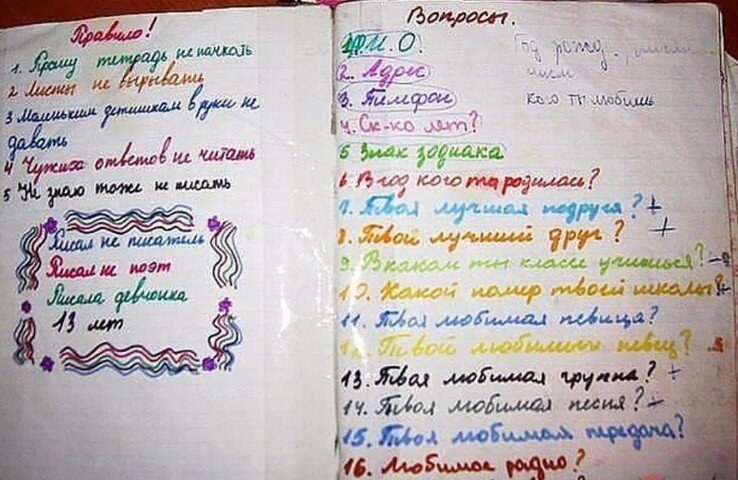 Правила!
1. Прошу тетрадь не пачкать
2 Листы не вырывать
3 Маленьким детишкам в руки не
давать
4 Чужих ответов не читать
5 Не знаю тоже не писать
Писал не писатель
Писал не поэт
Писала девчонка
13 лет
Вопросы.
1 Ф.И.О.
2. Адрес
3. Телефон
4. Ск-ко лет?
5 Знак зодиака
6 В год кого ты родилась?
7. Твоя лучшая подруга? +
8. Твой лучший друг? +
9. В каком ты классе учишься?
10. Какой номер твоей школы?
11. Твоя любимая певица?
12. Твой любимый певец?
13. Твоя любимая группа? +
14. Твоя любимая песня? +
15. Твоя любимая передача?
16. Любимое радио?
Год рожд.
кого ты любишь